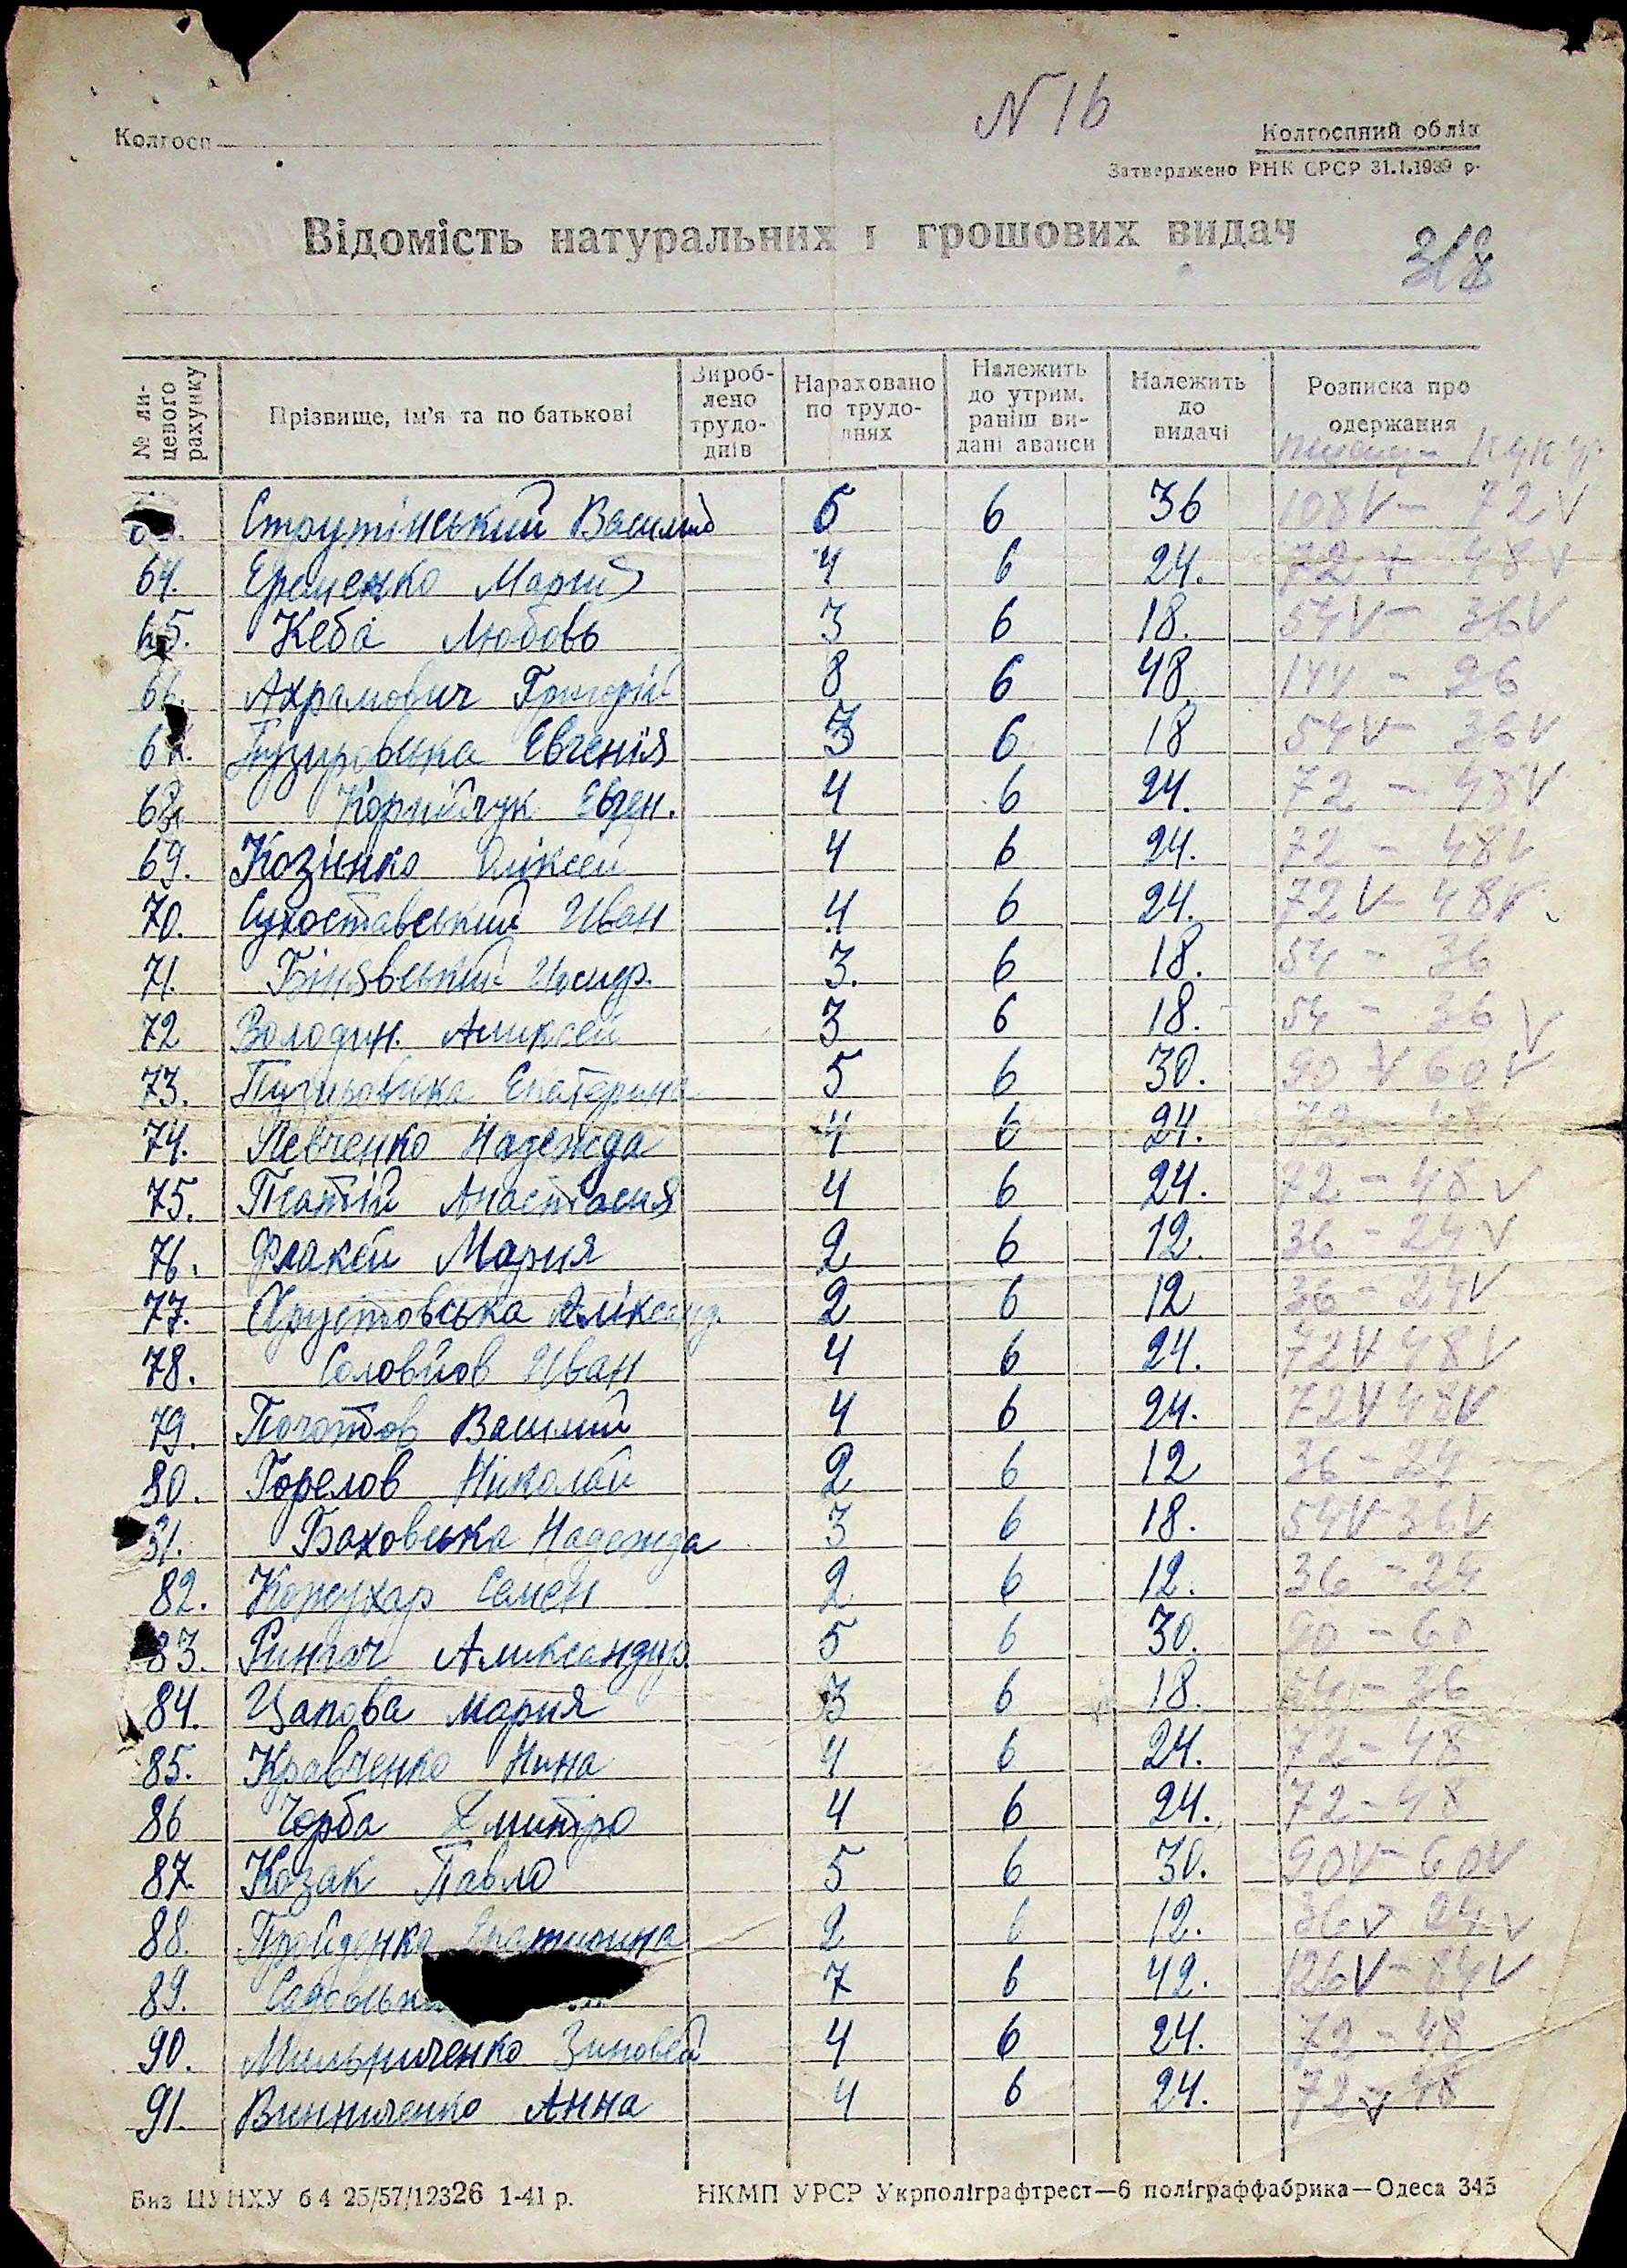 N 16
Колгосп
Колгоспний облік
Затверджено РНК СРСР 31.1.1939 р.
Відомість натуральних і грошових видач
318
№ ли-цевого рахунку
Прізвище, ім'я та по батькові
Вироб-лено трудо-днів
Нараховано по трудо-днях
Належить до утрим. раніш ви-дані аванси
Належить до видачі
Розписка про одержання
Кукур.
Струтінський Василий 6 6 36 108 V - 72 V
64. Еременко Мария 4 6 24. 72 + 48 V
65. Кеба Любовь 3 6 18. 54 V - 36 V
66. Ахрамович Григорій 8 6 48 144 - 96
67. Пузировська Евгенія 3 6 18 54 V - 36 V
68. Корнійчук Евген. 4 6 24. 72 - 48 V
69. Козінко Аліксей 4 6 24. 72 - 48 V
70. Сухоставський Иван 4 6 24. 72 V - 48 V
71. Бінявський Иосиф. 3. 6 18. 54 - 36
72 Володин. Аликсей 3 6 18. 54 - 36 V
73. Пузировська Екатерина 5 6 30. 90 V 60 V
74. Левченко Надежда 4 6 24. 72 - 48
75. Платій Анастасия 4 6 24. 72 - 48 V
76. Флакей Мария 2 6 12. 36 - 24 V
77. Хрустовська Аліксанд. 2 6 12 36 - 24 V
78. Соловйов Иван 4 6 24. 72 V 48 V
79. Василий 4 6 24. 72 V 48 V
80. Горелов Ніколай 2 6 12 36 - 24
81. Баховська Надежда 3 6 18. 54 V - 36 V
82. Кожухар Семен 2 6 12. 36 - 24
83. Рингач Александр. 5 6 30. 90 - 60
84. Цапова Мария 3 6 18. 54 - 36
85. Кравченко Нина 4 6 24. 72 - 48
86 Чорба Дмитро 4 6 24. 72 - 48
87. Козак Павло 5 6 30. 90 V - 60 V
88. Екатирина 2 6 12. 36 V 24 V
89. 7 6 42. 126 V - 84 V
90. Мильниченко Зиновей 4 6 24. 72 - 48
91. Винниченко Анна 4 6 24. 72 V 48
Виз ЦУНХУ б4 25/57/12326 1-41 р.
НКМП УРСР Укрполіграфтрест—6 поліграффабрика—Одеса 345